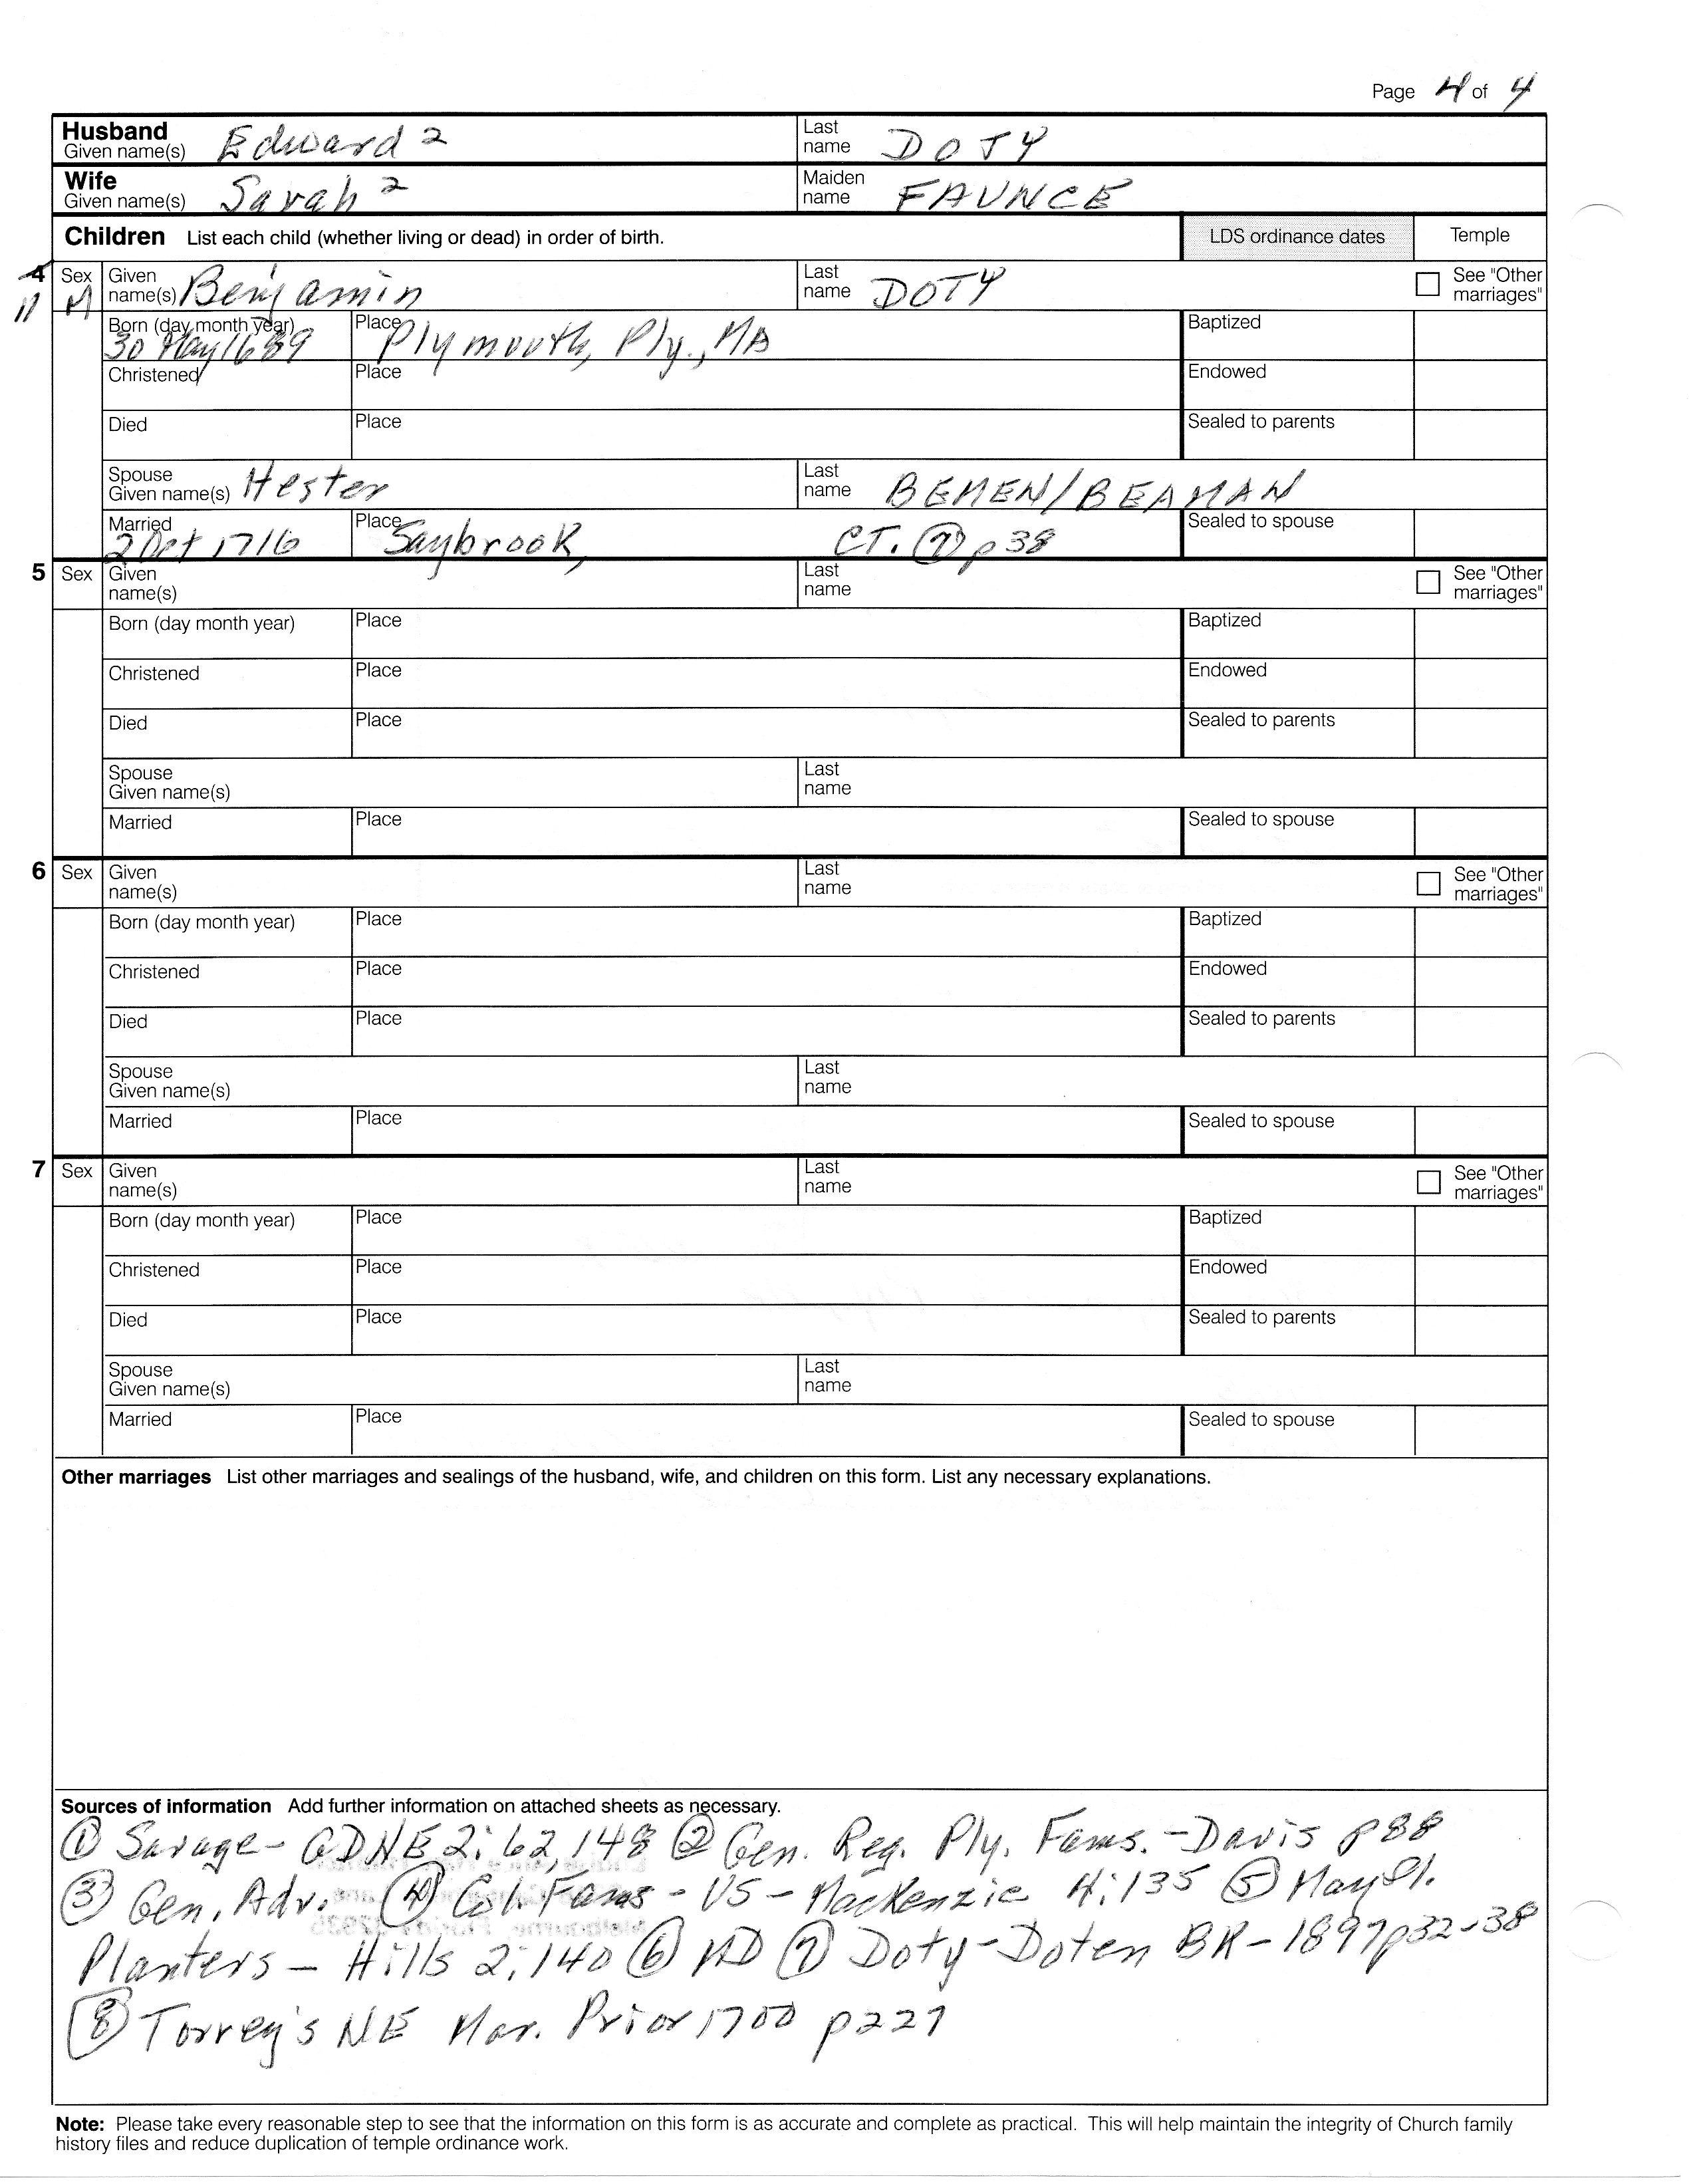 Page 4 of 4
Husband Given name(s) Edward 2 Last name DOTY
Wife Given name(s) Sarah 2 Maiden name FAUNCE
Children List each child (whether living or dead) in order of birth. LDS ordinance dates Temple
4 11 Sex M Given name(s) Benjamin Last name DOTY See "Other marriages"
Born (day month year) 30 May 1689 Place Plymouth, Ply., MA Baptized
Christened Place Endowed
Died Place Sealed to parents
Spouse Given name(s) Hester Last name BEMEN/BEAMAN
Married 2 Oct 1716 Place Saybrook, CT. ⑦ p38 Sealed to spouse
5 Sex Given name(s) Last name See "Other marriages"
Born (day month year) Place Baptized
Christened Place Endowed
Died Place Sealed to parents
Spouse Given name(s) Last name
Married Place Sealed to spouse
6 Sex Given name(s) Last name See "Other marriages"
Born (day month year) Place Baptized
Christened Place Endowed
Died Place Sealed to parents
Spouse Given name(s) Last name
Married Place Sealed to spouse
7 Sex Given name(s) Last name See "Other marriages"
Born (day month year) Place Baptized
Christened Place Endowed
Died Place Sealed to parents
Spouse Given name(s) Last name
Married Place Sealed to spouse
Other marriages List other marriages and sealings of the husband, wife, and children on this form. List any necessary explanations.
Sources of information Add further information on attached sheets as necessary.
① Savage - GDNE 2:62,148 ② Gen. Reg. Ply. Fams. - Davis p88
③ Gen. Adv. ④ Col. Fams - US - MacKenzie 4:135 ⑤ Mayfl.
Planters - Hills 2:140 ⑥ MD ⑦ Doty-Doten BK - 1897 p32-38
⑧ Torrey's NE Mar. Prior 1700 p227
Note: Please take every reasonable step to see that the information on this form is as accurate and complete as practical. This will help maintain the integrity of Church family
history files and reduce duplication of temple ordinance work.